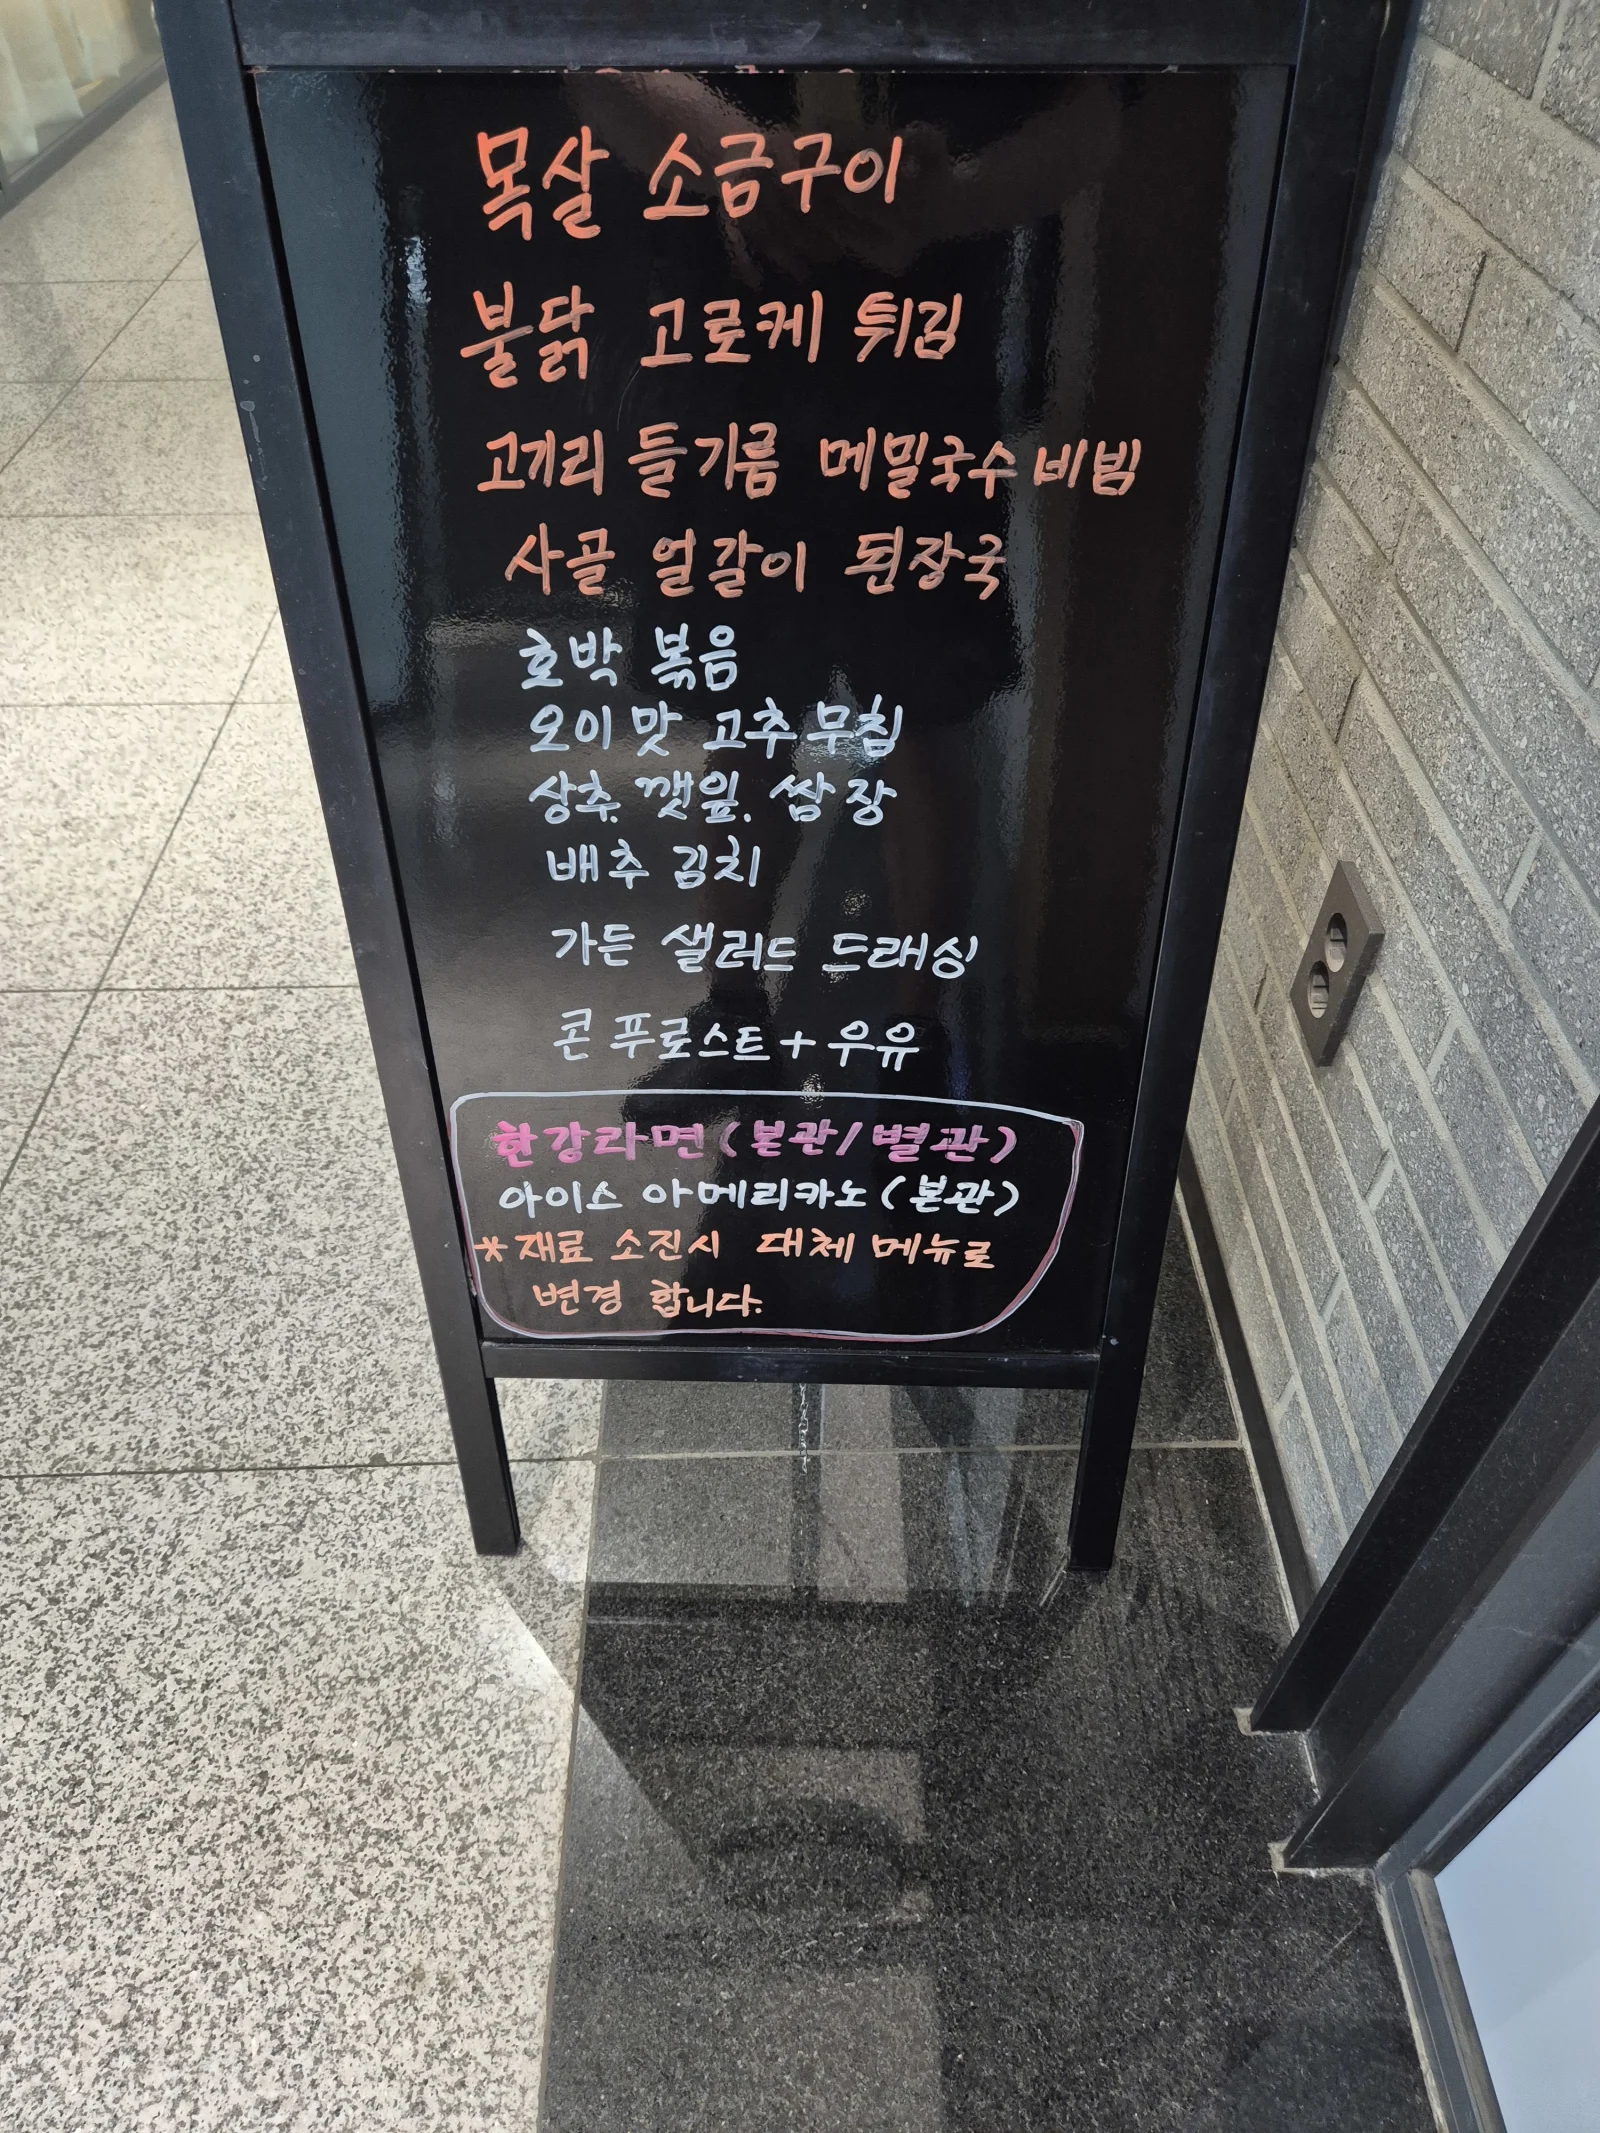 목살 소금구이
불닭 고로케 튀김
고끼리 들기름 메밀국수 비빔
사골 얼갈이 된장국
호박 볶음
오이 맛 고추 무침
상추. 깻잎. 쌈장
배추 김치
가든 샐러드 드래싱
콘 푸로스트 + 우유
한강라면 (본관/별관)
아이스 아메리카노 (본관)
* 재료 소진시 대체 메뉴로
변경 합니다.